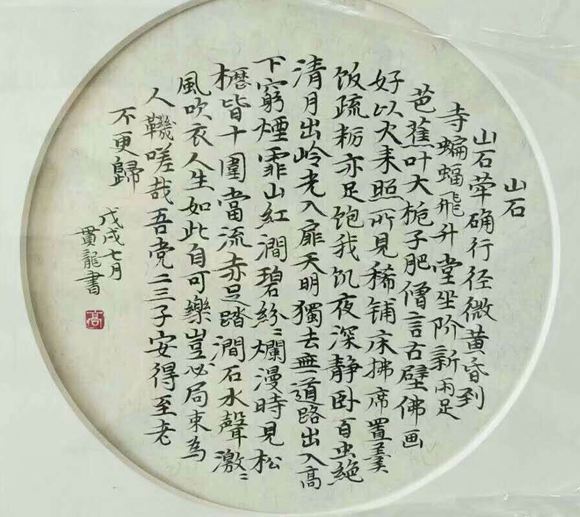 山石
山石荦确行径微黄昏到
寺蝙蝠飛升堂坐阶新雨足
芭蕉叶大栀子肥僧言古壁佛画
好以火来照所見稀铺床拂席置羹
饭疏粝亦足饱我饥夜深静卧百虫絶
清月出岭光入扉天明獨去無道路出入高
下窮煙霏山紅澗碧紛〻爛漫時見松
櫪皆十圍當流赤足踏澗石水聲激〻
風吹衣人生如此自可樂豈必局束為
人鞿嗟哉吾党二三子安得至老
不更歸
戊戌七月
貫龍書
高